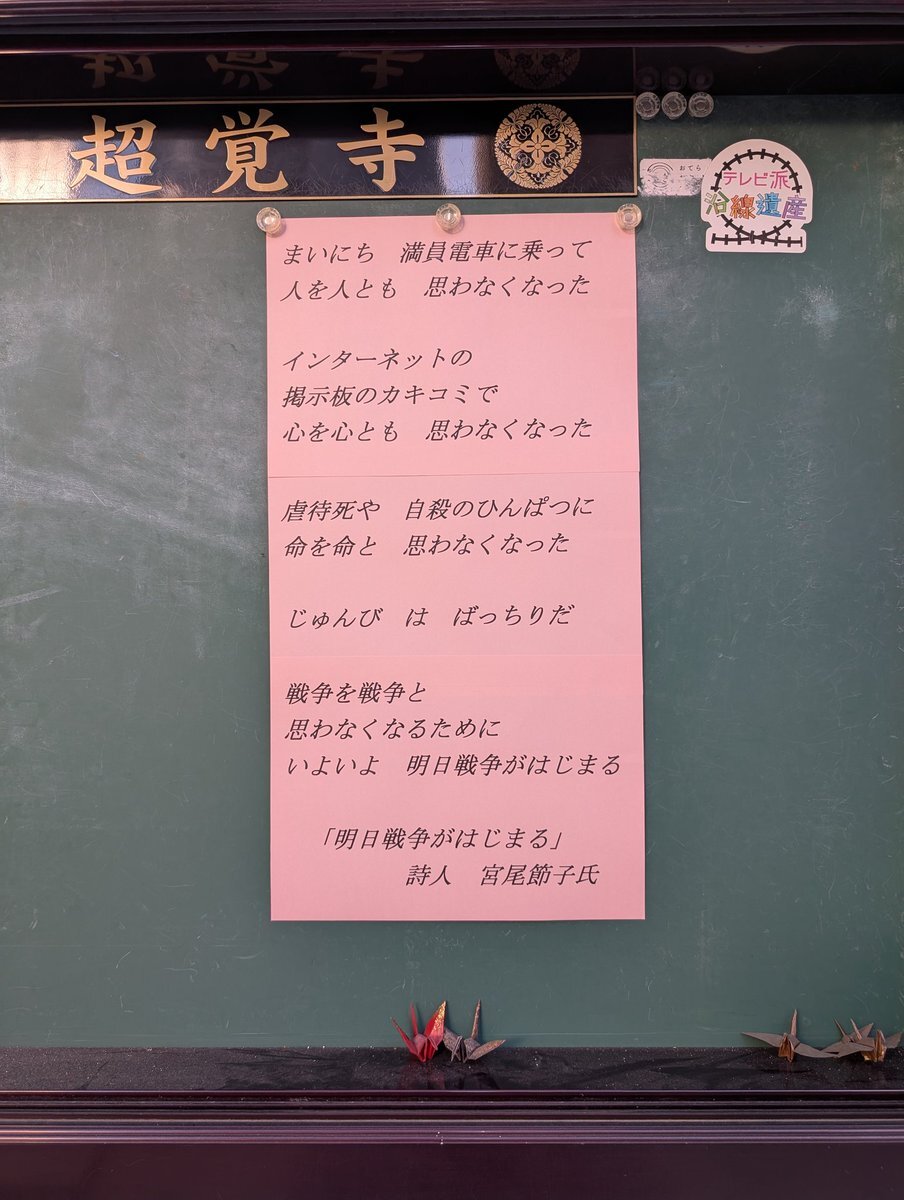 超覚寺
おてら
テレビ派
沿線遺産
まいにち　満員電車に乗って
人を人とも　思わなくなった
インターネットの
掲示板のカキコミで
心を心とも　思わなくなった
虐待死や　自殺のひんぱつに
命を命と　思わなくなった
じゅんび　は　ばっちりだ
戦争を戦争と
思わなくなるために
いよいよ　明日戦争がはじまる
「明日戦争がはじまる」
詩人　宮尾節子氏